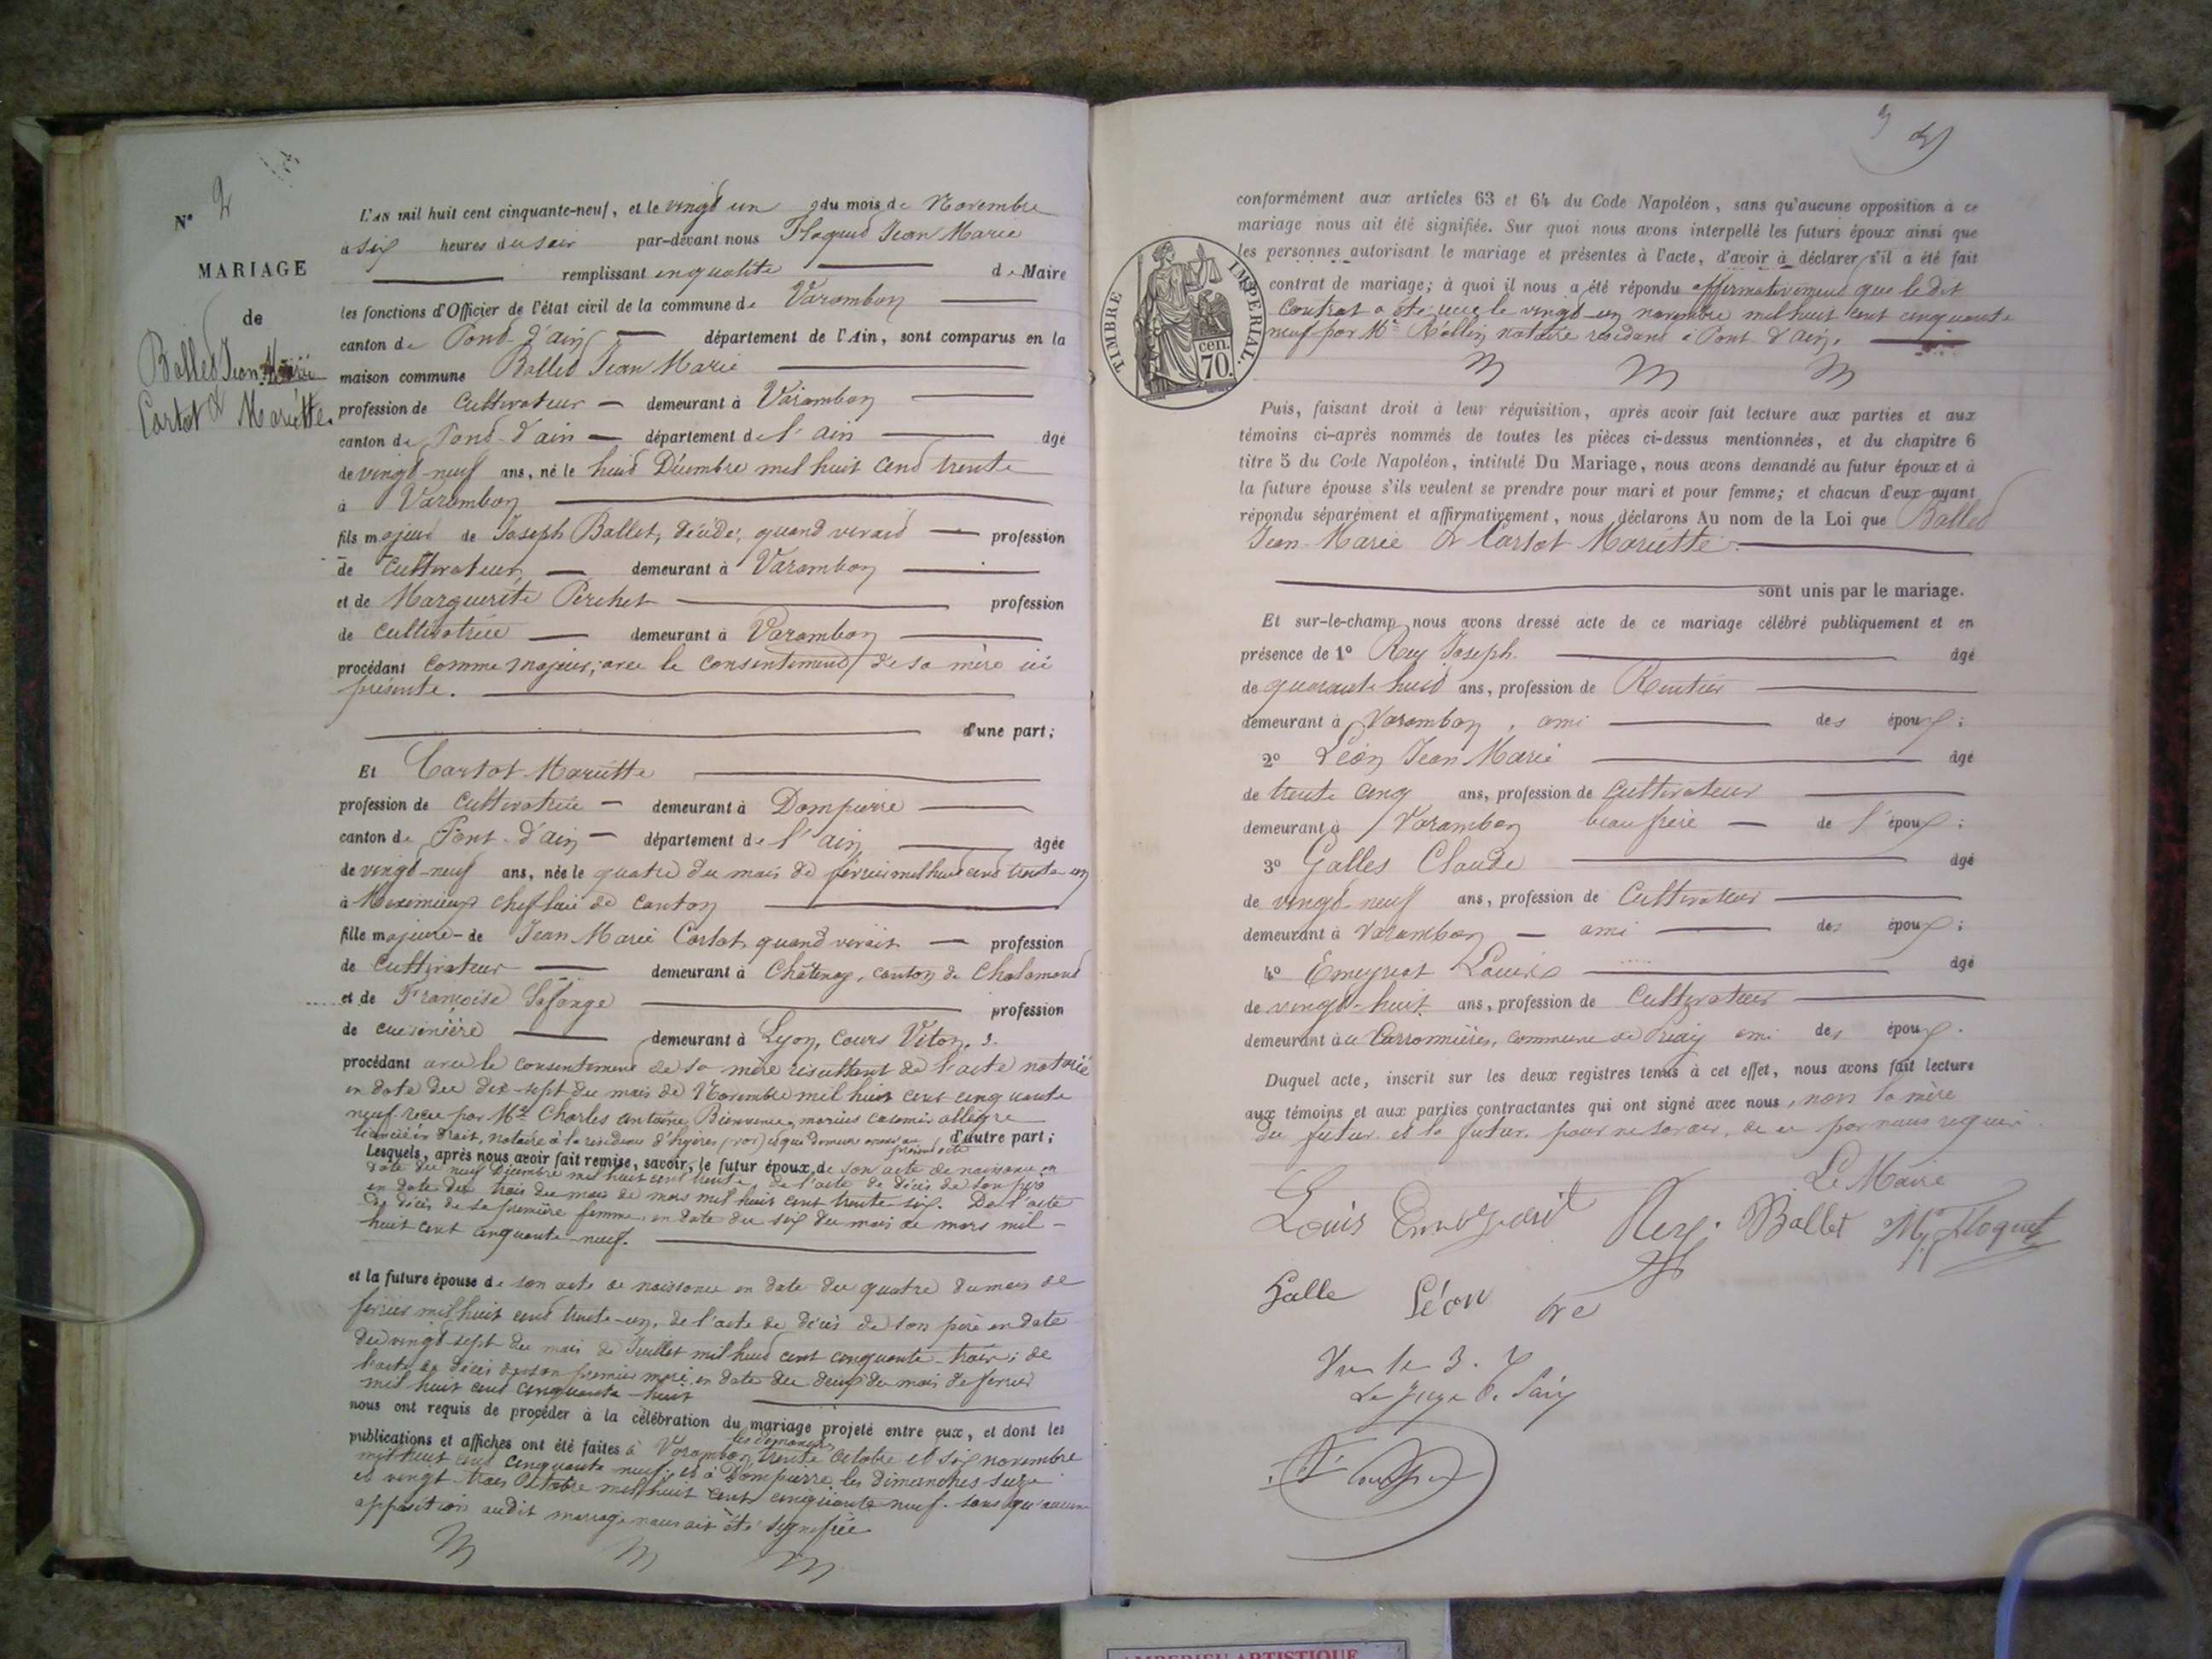 N° 2
MARIAGE
de
Ballet Jean Marie
&
Cartot Mariette.
L'an mil huit cent cinquante-neuf, et le vingt un du mois de Novembre
à six heures du soir par-devant nous Floquet Jean Marie
remplissant en qualité de Maire
les fonctions d'Officier de l'état civil de la commune de Varambon
canton de Pont-d'ain département de l'Ain, sont comparus en la
maison commune Ballet Jean Marie
profession de Cultivateur demeurant à Varambon
canton de Pont-d'ain département de l'ain âgé
de vingt-neuf ans, né le huit Décembre mil huit cent trente
à Varambon
fils majeur de Joseph Ballet, décédé, quand vivait profession
de Cultivateur demeurant à Varambon
et de Marguerite Perchet profession
de cultivatrice demeurant à Varambon
procédant comme majeur, avec le consentement de sa mère ici
présente.
d'une part;
Et Cartot Mariette
profession de Cultivatrice demeurant à Dompierre
canton de Pont-d'ain département de l'ain âgée
de vingt-neuf ans, née le quatre du mois de février mil huit cent trente-un
à Meximieux chef lieu de canton
fille majeure de Jean Marie Cartot quand vivait profession
de Cultivateur demeurant à Châtenay, canton de Chalamont
et de Françoise Lafonge profession
de cuisinière demeurant à Lyon, Cours Viton,
procédant avec le consentement de sa mère résultant de l'acte notarié
en date du dix-sept du mois de Novembre mil huit cent cinquante
neuf reçu par Me Charles Antoine Bienvenu marius casemir allègre
licencié en droit, notaire à la résidence d'hyères (var) et qui demeure annexé au présent acte d'autre part;
Lesquels, après nous avoir fait remise, savoir, le futur époux de son acte de naissance en
date du neuf Décembre mil huit cent trente, de l'acte de décès de son père
en date du trois du mois de mars mil huit cent trente-six. De l'acte
de décès de sa première femme, en date du six du mois de mars mil-
huit cent cinquante-neuf.
et la future épouse de son acte de naissance en date du quatre du mois de
février mil huit cent trente-un, de l'acte de décès de son père en date
du vingt sept du mois de Juillet mil huit cent cinquante-trois; de
l'acte de décès de son premier mari, en date du deux du mois de février
mil huit cent cinquante-huit
nous ont requis de procéder à la célébration du mariage projeté entre eux, et dont les
publications et affiches ont été faites à Varambon les dimanches trente octobre et six novembre
mil huit cent cinquante neuf; et à Dompierre les Dimanches seize
et vingt-trois Octobre mil huit cent cinquante neuf. sans qu'aucune
opposition audit mariage nous ait été signifiée
3
conformément aux articles 63 et 64 du Code Napoléon, sans qu'aucune opposition à ce
mariage nous ait été signifiée. Sur quoi nous avons interpellé les futurs époux ainsi que
les personnes autorisant le mariage et présentes à l'acte, d'avoir à déclarer s'il a été fait
contrat de mariage; à quoi il nous a été répondu affirmativement que le dit
contrat a été reçu le vingt-un novembre mil huit cent cinquante
neuf par Me Rollin notaire résidant à Pont d'ain.
TIMBRE IMPÉRIAL.
70 cen.
Puis, faisant droit à leur réquisition, après avoir fait lecture aux parties et aux
témoins ci-après nommés de toutes les pièces ci-dessus mentionnées, et du chapitre 6
titre 5 du Code Napoléon, intitulé Du Mariage, nous avons demandé au futur époux et à
la future épouse s'ils veulent se prendre pour mari et pour femme; et chacun d'eux ayant
répondu séparément et affirmativement, nous déclarons Au nom de la Loi que Ballet
Jean-Marie & Cartot Mariette
sont unis par le mariage.
Et sur-le-champ nous avons dressé acte de ce mariage célébré publiquement et en
présence de 1° Rey Joseph âgé
de quarante huit ans, profession de Rentier
demeurant à Varambon, ami des époux;
2° Léon Jean Marie âgé
de trente cinq ans, profession de Cultivateur
demeurant à Varambon beau frère de l'époux;
3° Galles Claude âgé
de vingt neuf ans, profession de Cultivateur
demeurant à Varambon ami des époux;
4° Emeyriat Louis âgé
de vingt-huit ans, profession de Cultivateur
demeurant à Carronnières, commune de Priay ami des époux.
Duquel acte, inscrit sur les deux registres tenus à cet effet, nous avons fait lecture
aux témoins et aux parties contractantes qui ont signé avec nous, non la mère
du futur et la future pour ne savoir, de ce par nous requis
Le Maire
Louis Emeyriat Rey Ballet Floquet
Galle Léon
Vu le 3.
Le Juge
AMBERIEU ARTISTIQUE